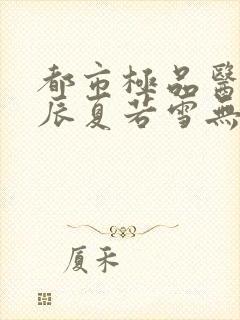 都市極品醫
辰夏若雪無
厦禾